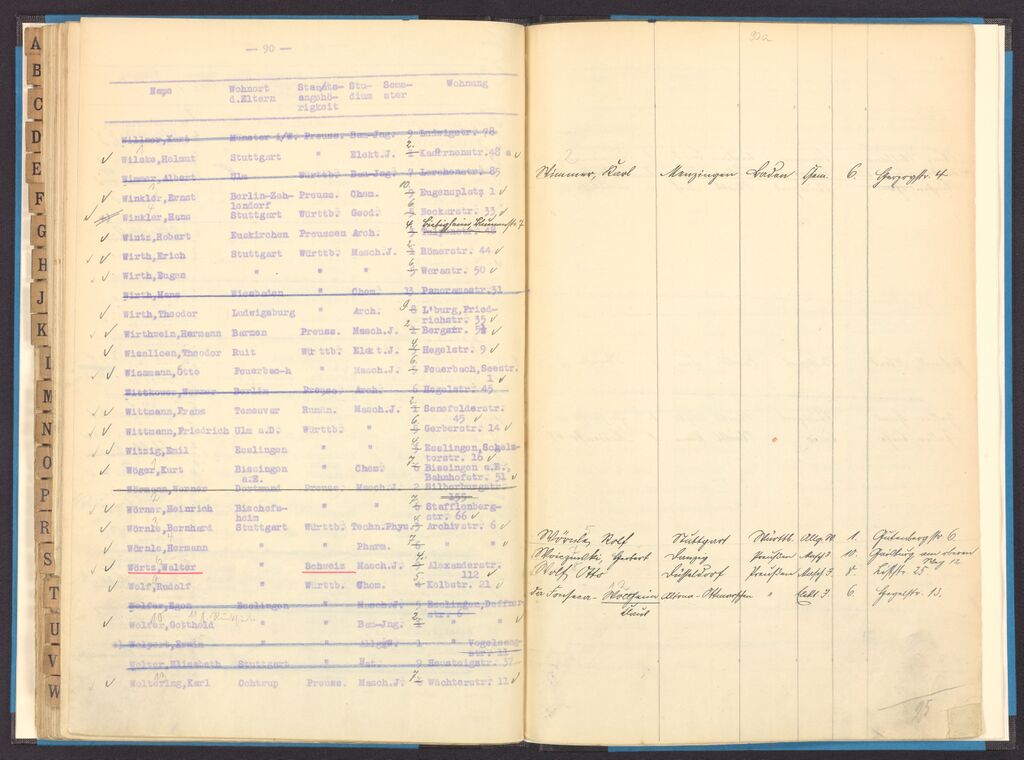 A
B
C
D
E
F
G
H
J
K
L
M
N
O
P
R
S
T
U
V
W
— 90 —
Name Wohnort d.Eltern Staatsangehörigkeit Studium Semester Wohnung
Willner,Kurt Münster i/W. Preuss. Bau-Jng. 9 Ludwigstr. 98
Wilske,Helmut Stuttgart " Elekt.J. 2. Kasernenstr.48
Wimmer,Albert Ulm Württb. Bau-Jng. 7 Lerchenstr. 85
Winkler,Ernst Berlin-Zeh- Preuss. Chem. 10. Eugensplatz 1
lendorf
Winkler,Hans Stuttgart Württb. Geod. 6 Neckarstr. 33
Wintz,Robert Euskirchen Preussen Arch. 4. Bietigheim, Blumenstr. 7
Wirth,Erich Stuttgart Württb. Masch.J. 2. Römerstr. 44
Wirth,Eugen " " " 6 Werastr. 50
Wirth,Hans Wiesbaden " Chem. 13 Panoramastr.31
Wirth,Theodor Ludwigsburg " Arch. 9 8 L'burg,Fried-
richstr. 35
Wirthwein,Hermann Barmen Preuss. Masch.J. 2 Bergstr.
Wisalioen,Theodor Ruit Württb. Elekt.J. 4 Hegelstr. 9
Wissmann,Otto Feuerbach " Masch.J. 6. Feuerbach,Seestr.
1
Wittkower,Werner Berlin Preuss. Arch. 6 Hegelstr. 45
Wittmann,Franz Temesvar Rumän. Masch.J. 2. Senefelderstr.
45
Wittmann,Friedrich Ulm a.D. Württb. " 6. Gerberstr. 14
Witzig,Emil Esslingen " " 4 Esslingen,Schelz-
torstr. 16
Wöger,Kurt Bissingen " Chem. 7 Bissingen a.E.,
a.E. Bahnhofstr. 51
Wörmann,Werner Dortmund Preuss. Masch.J. 2 Silberburgstr.
155
Wörner,Heinrich Bischofs- " " 7 Stafflenberg-
heim str. 66
Wörnle,Bernhard Stuttgart Württb. Techn.Phys. Archivstr. 6
Wörnle,Hermann " " Pharm. " "
Wörtz,Walter " Schweiz Masch.J. 4. Alexanderstr.
112
Wolf,Rudolf " Württb. Chem. 5 Kolbstr. 21
Wolfer,Egon Esslingen " Masch.J. 9 Esslingen,
Wolfer,Gotthold " " Bau-Jng. 2 " "
Wolpert,Erwin " " Allgw. 1 Vogelsang-
str. 11
Wolter,Elisabeth Stuttgart " Nat. 9 Hausteigstr. 37
Woltering,Karl Ochtrup Preuss. Masch.J. 7 Wächterstr. 11
90a
Wimmer, Karl Menzingen Baden Chem. 6. Herzogstr. 4
Wörnle, Rolf Stuttgart Württb. Allg.W. 1. Gutenbergstr 6
Herbert Danzig Preußen 10.
Wolf, Otto Düsseldorf Preußen Masch J. 4. 25
da Fonseca-Wollheim Altona-Ottmarschen " Elekt J. 6 Hegelstr. 13.
95